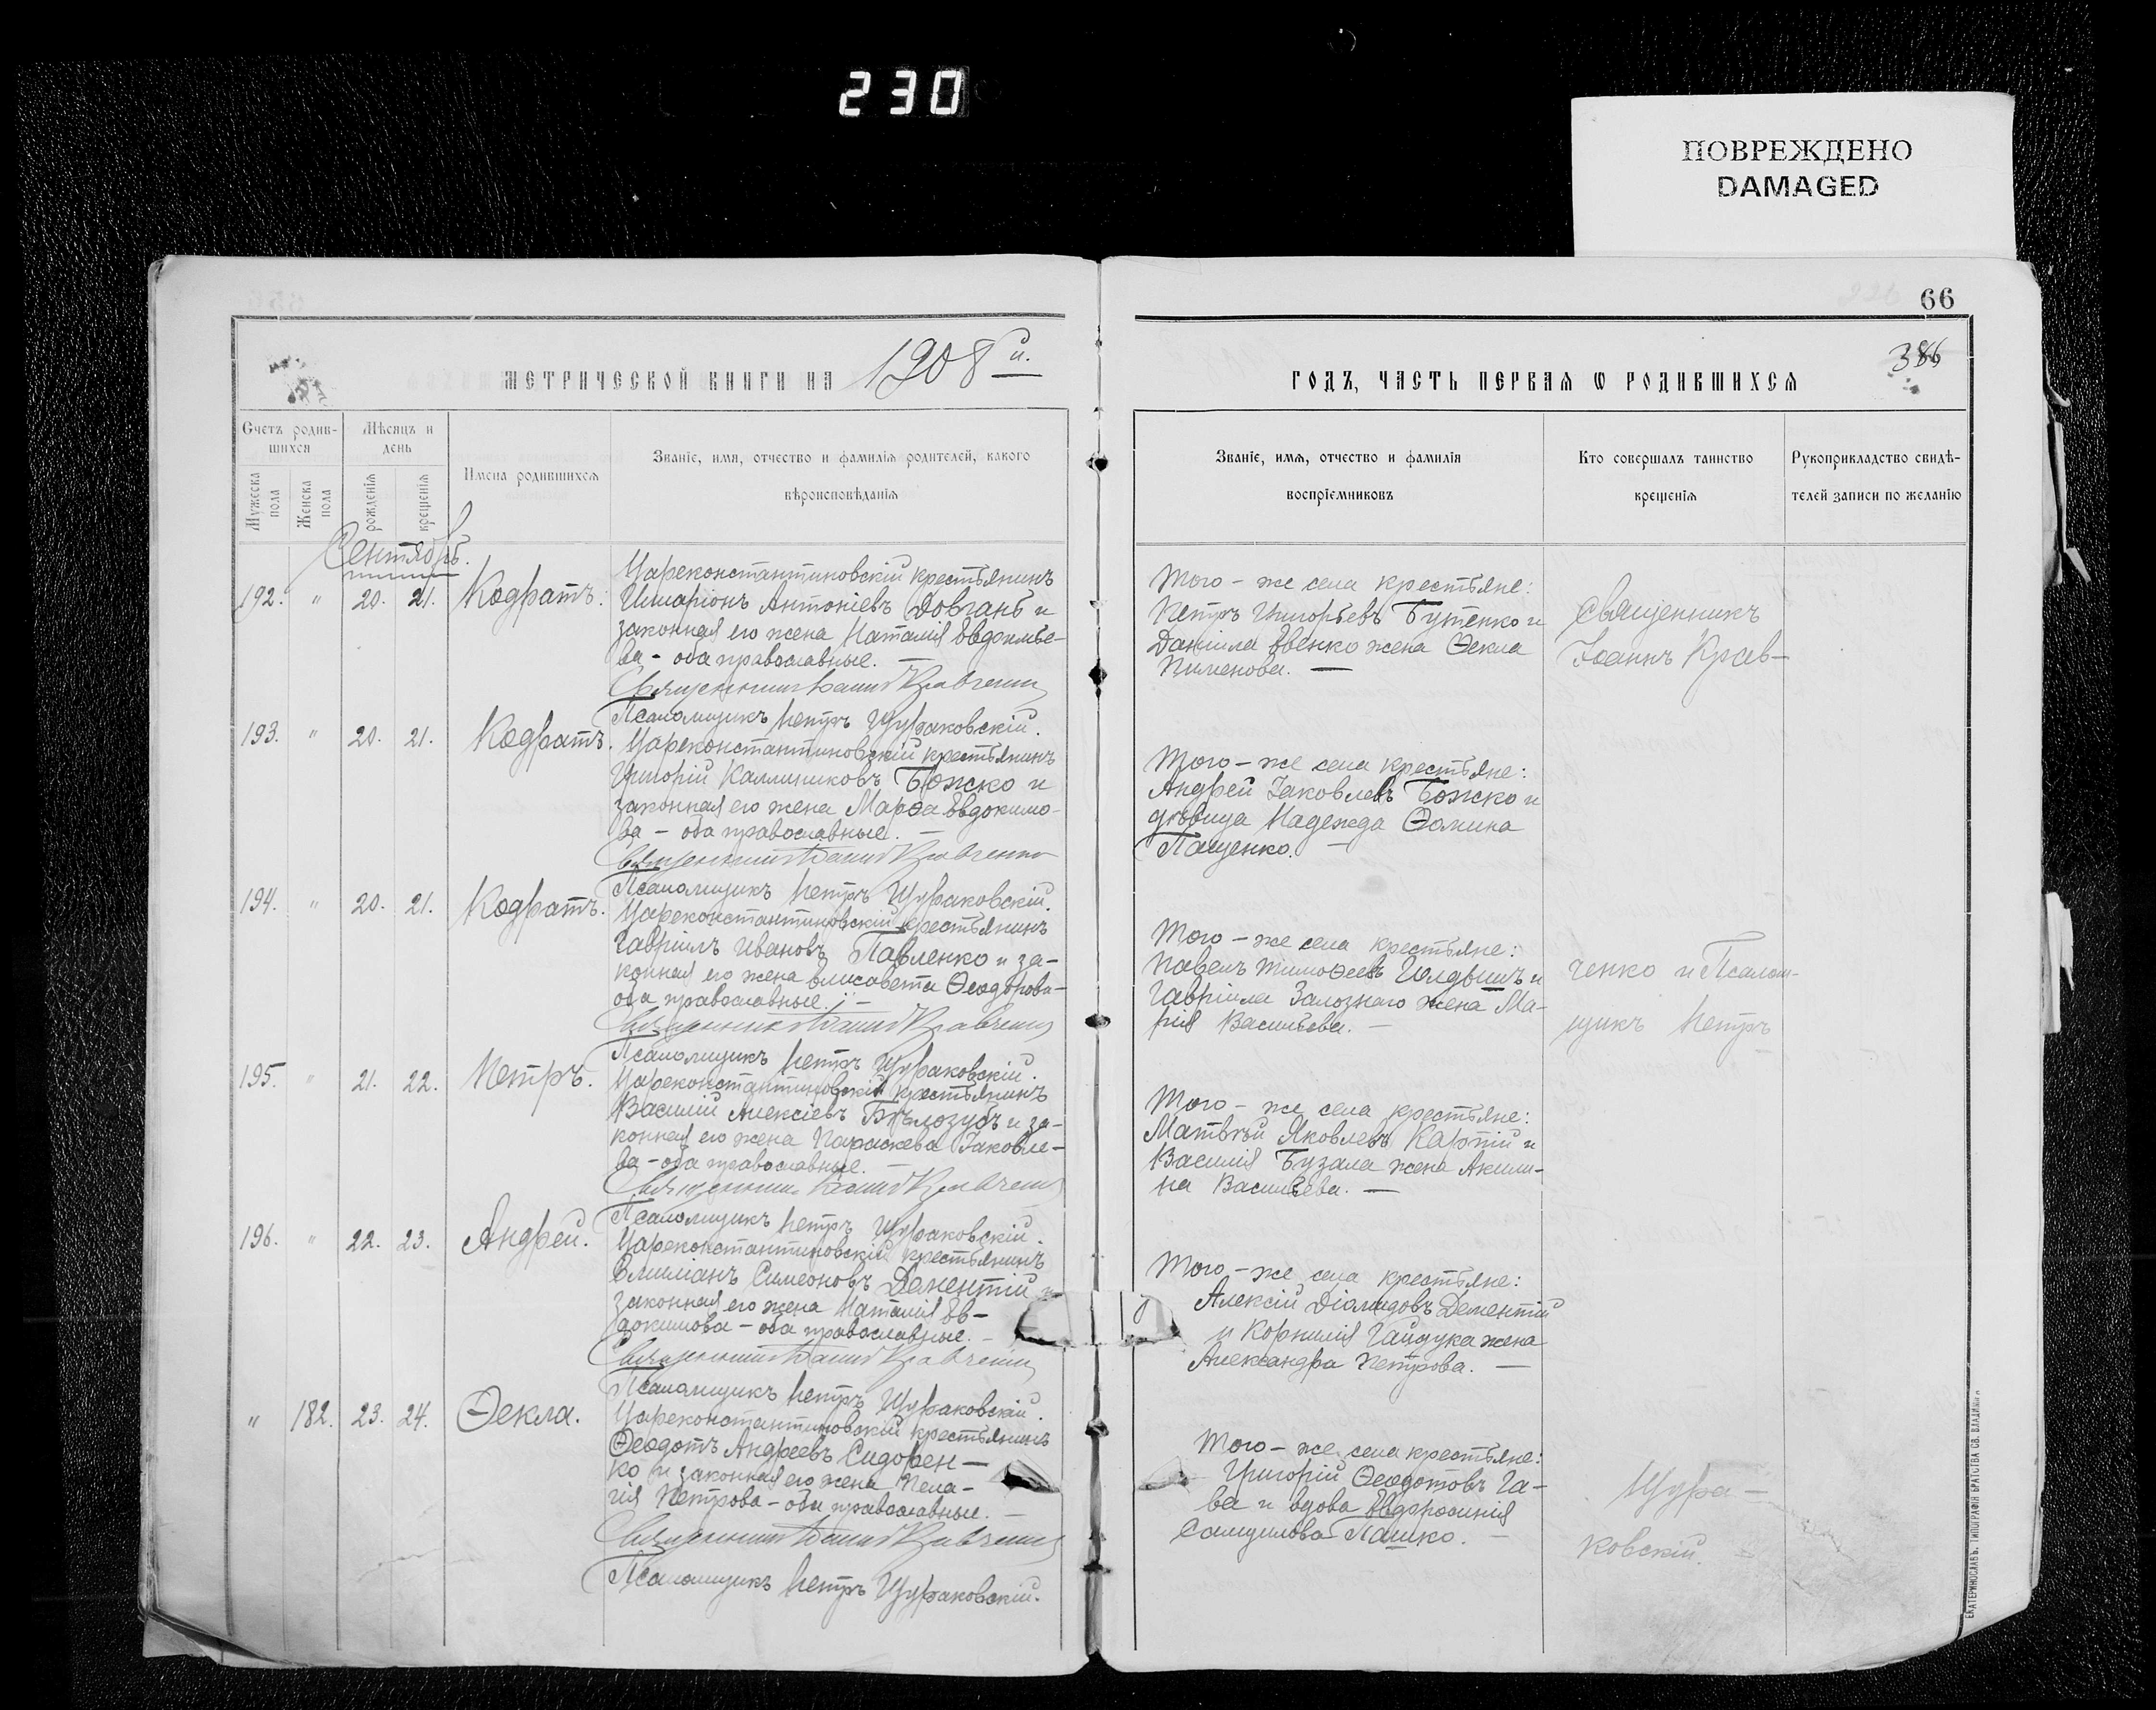 230
ПОВРЕЖДЕНО
DAMAGED
66
386
МЕТРИЧЕСКОЙ КНИГИ НА 1908й.
ГОДЪ, ЧАСТЬ ПЕРВАЯ Ѡ РОДИВШИХСЯ
Счетъ родив-
шихся
Мѣсяцъ и
день
Мужеска
пола
Женска
пола
рожденія
крещенія
Имена родившихся
Званіе, имя, отчество и фамилія родителей, какого
вѣроисповѣданія
Званіе, имя, отчество и фамилія
воспріемниковъ
Кто совершалъ таинство
крещенія
Рукоприкладство свидѣ-
телей записи по желанію
Сентябрь.
192. " 20. 21. Кодратъ.
Цареконстантиновскій крестьянинъ
Иларіонъ Антоніевъ Довгань и
законная его жена Наталія Евдокимо-
ва - оба православные. —
Священникъ Іоаннъ Кравченко
Псаломщикъ Петръ Цураковскій.
Того - же села крестьяне:
Петръ Григорьевъ Бутенко и
Даніила Евенко жена Ѳекла
Пименова. —
193. " 20. 21. Кодратъ.
Цареконстантиновскій крестьянинъ
Григорій Каллиниковъ Божко и
законная его жена Марѳа Евдокимо-
ва - оба православные. —
Священникъ Іоаннъ Кравченко
Псаломщикъ Петръ Цураковскій.
Того - же села крестьяне:
Андрей Іаковлевъ Божко и
дѣвица Надежда Ѳомина
Пащенко. —
194. " 20. 21. Кодратъ.
Цареконстантиновскій крестьянинъ
Гавріилъ Ивановъ Павленко и за-
конная его жена Елисавета Ѳеодорова-
оба православные. —
Священникъ Іоаннъ Кравченко
Псаломщикъ Петръ Цураковскій.
Того - же села крестьяне:
Павелъ Тимоѳеевъ Голдышъ и
Гавріила Залознаго жена Ма-
рія Васильева. —
195. " 21. 22. Петръ.
Цареконстантиновскій крестьянинъ
Василій Алексіевъ Бѣлозубъ и за-
конная его жена Параскева Іаковле-
ва - оба православные. —
Священникъ Іоаннъ Кравченко
Псаломщикъ Петръ Цураковскій.
Того - же села крестьяне:
Матвѣй Яковлевъ Карпій и
Василія Бузала жена Акили-
на Васильева. —
196. " 22. 23. Андрей.
Цареконстантиновскій крестьянинъ
Емиліанъ Симеоновъ Дементій и
законная его жена Наталія Ев-
докимова - оба православные. —
Священникъ Іоаннъ Кравченко
Псаломщикъ Петръ Цураковскій.
Того - же села крестьяне:
Алексій Діомидовъ Дементій
и Корнилія Гайдука жена
Александра Петрова. —
" 182. 23. 24. Ѳекла.
Цареконстантиновскій крестьянинъ
Ѳеодотъ Андреевъ Сидорен-
ко и законная его жена Пела-
гія Петрова - оба православные. —
Священникъ Іоаннъ Кравченко
Псаломщикъ Петръ Цураковскій.
Того - же села крестьяне:
Григорій Ѳеодотовъ Га-
ва и вдова Евфросинія
Самуилова Пашко. —
Священникъ
Іоаннъ Крав-
ченко и Псалом-
щикъ Петръ
Цура-
ковскій.
ЕКАТЕРИНОСЛАВЪ. ТИПОГРАФІЯ БРАТСТВА СВ. ВЛАДИМІРА